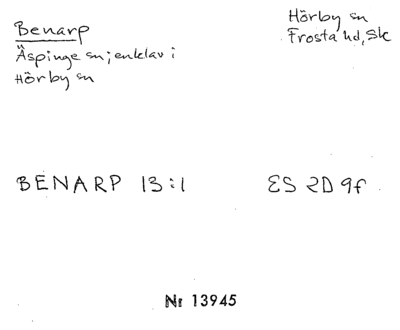 Benarp
Äspinge sn; enklav i
Hörby sn
Hörby sn
Frosta hd, Sk
BENARP 13:1
ES 2D 9f
Nr 13945